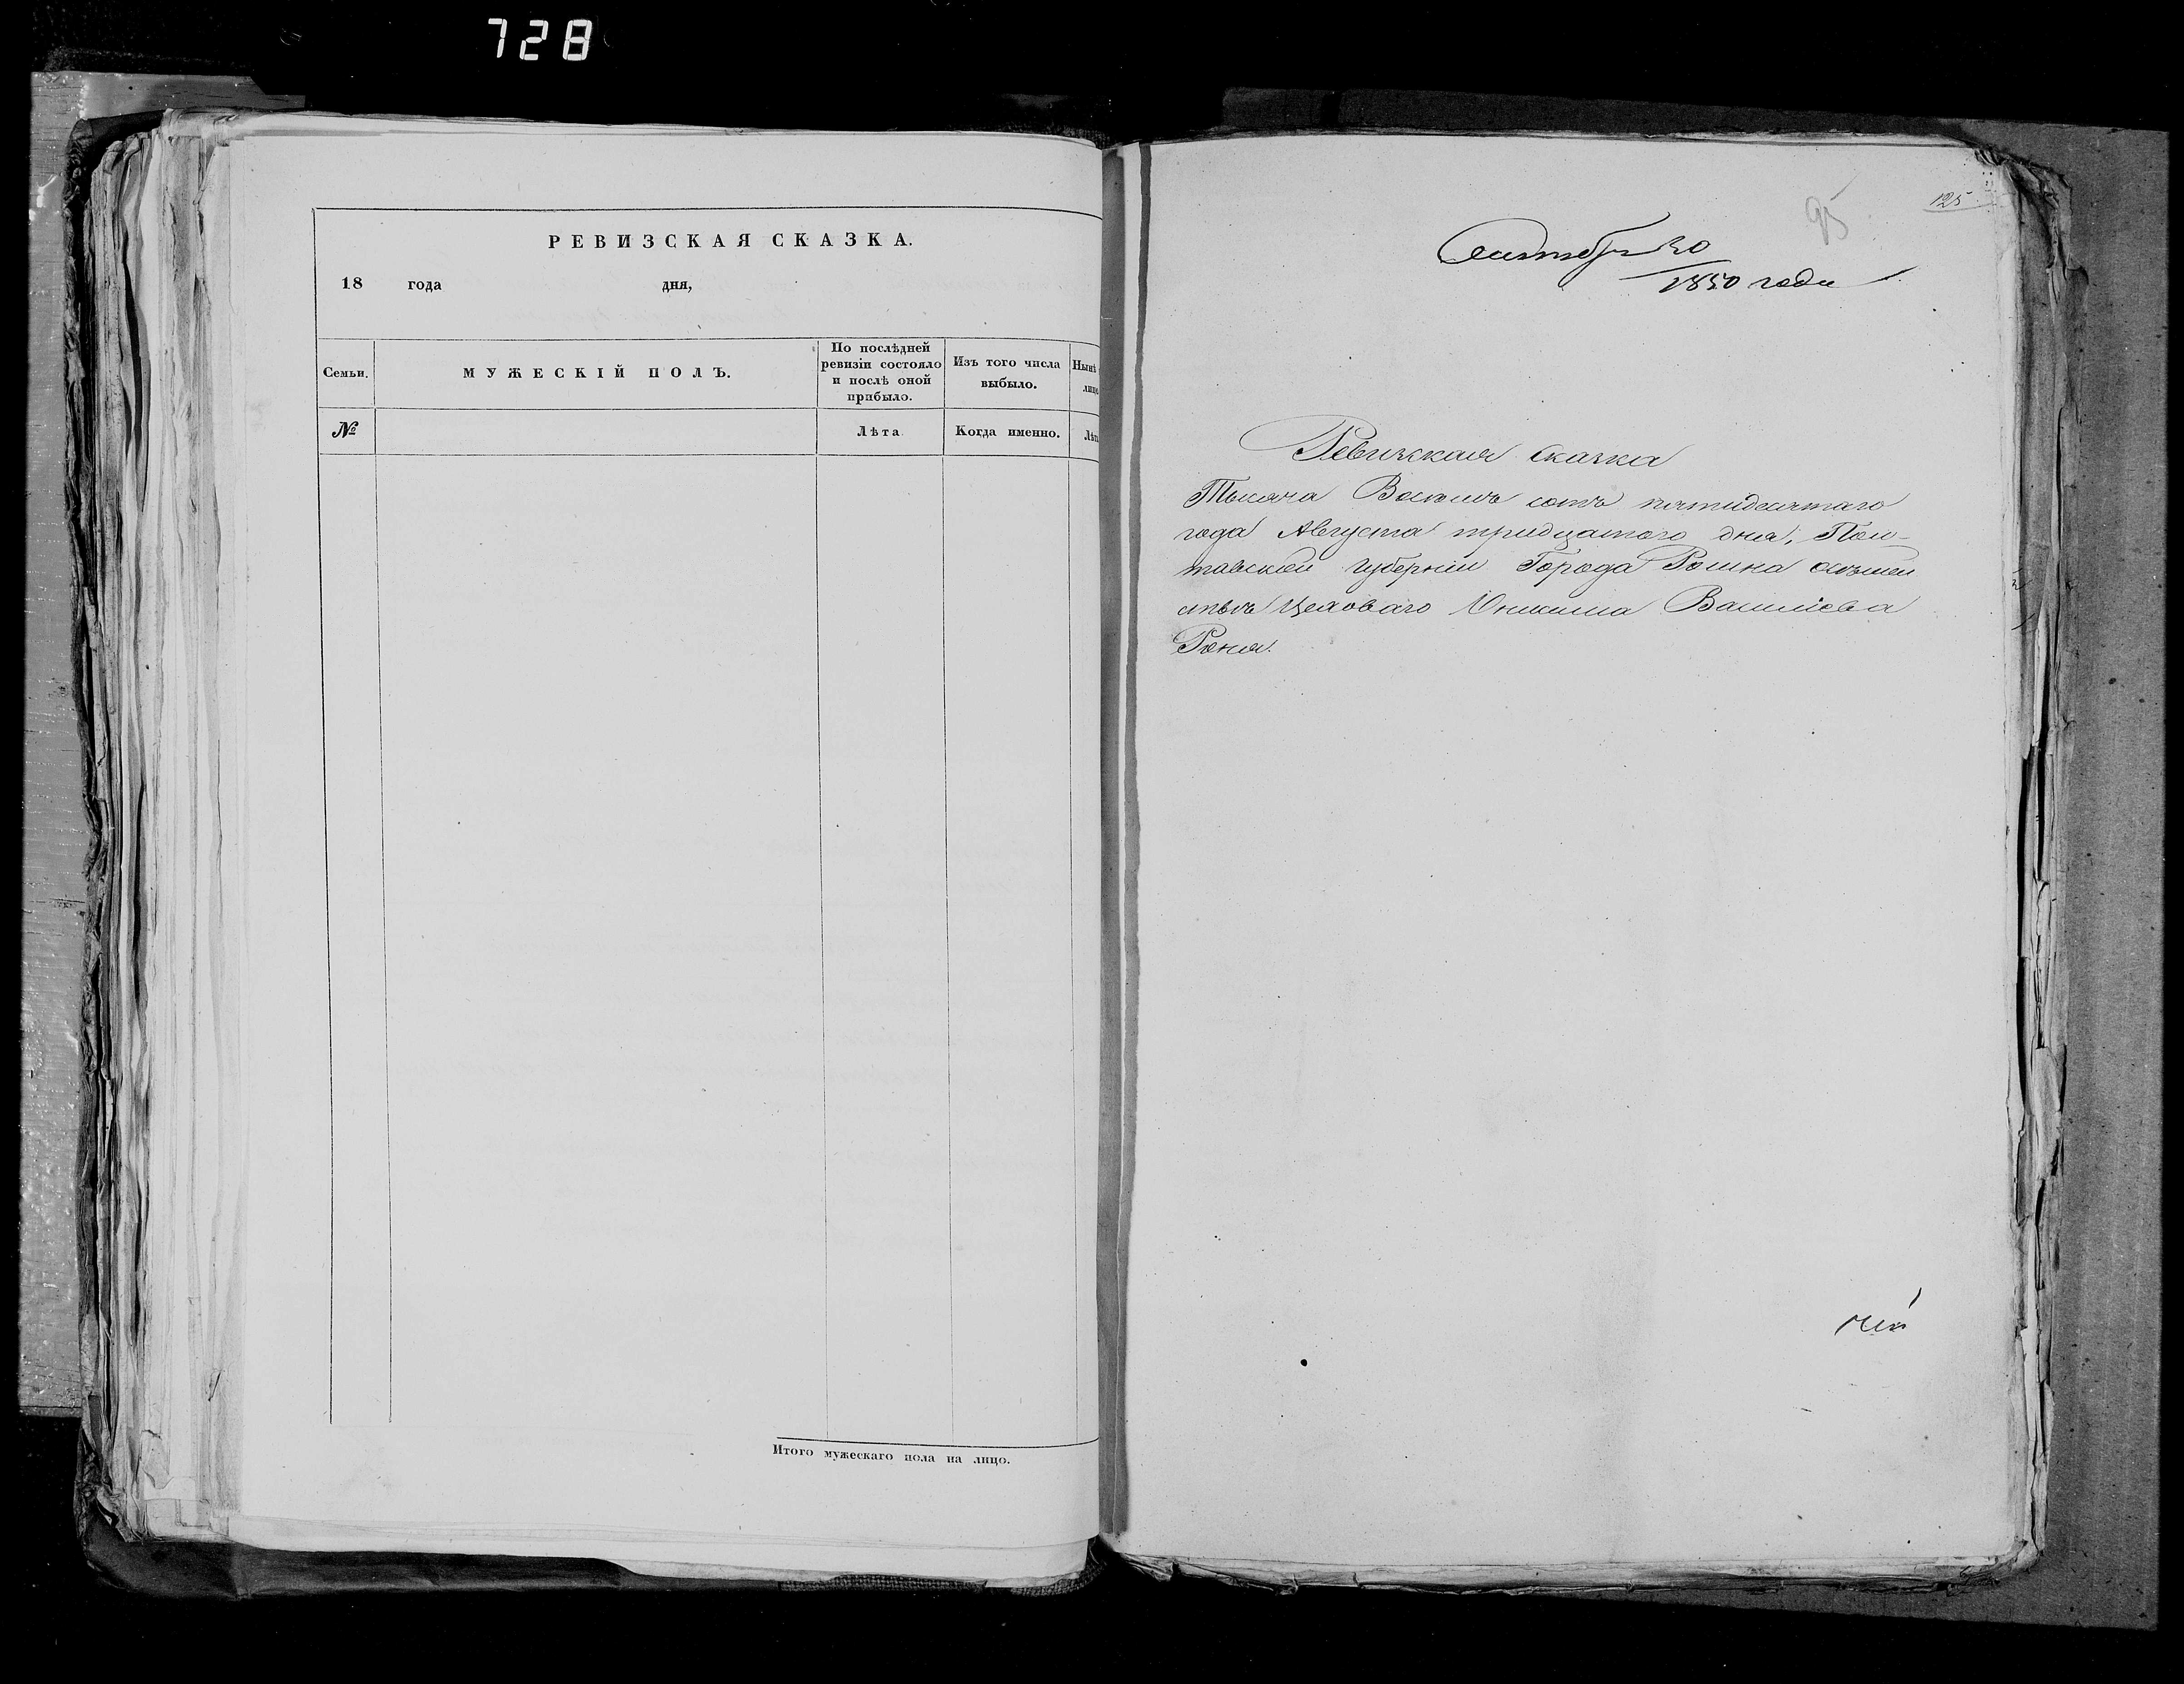 728
РЕВИЗСКАЯ СКАЗКА.
18 года дня,
Семьи.
МУЖЕСКІЙ ПОЛЪ.
По послѣдней
ревизіи состояло
и послѣ оной
прибыло.
Изъ того числа
выбыло.
Нынѣ
лицо
№
Лѣта
Когда именно.
Лѣта
Итого мужескаго пола на лицо.
95
125
Сентября 30
1850 года
Ревизская сказка
Тысяча Восемь сотъ пятидесятаго
года Августа тридцатого дня, Пол-
тавской Губерніи Города Ромна
Цеховаго Онисима Васильева
Роня.